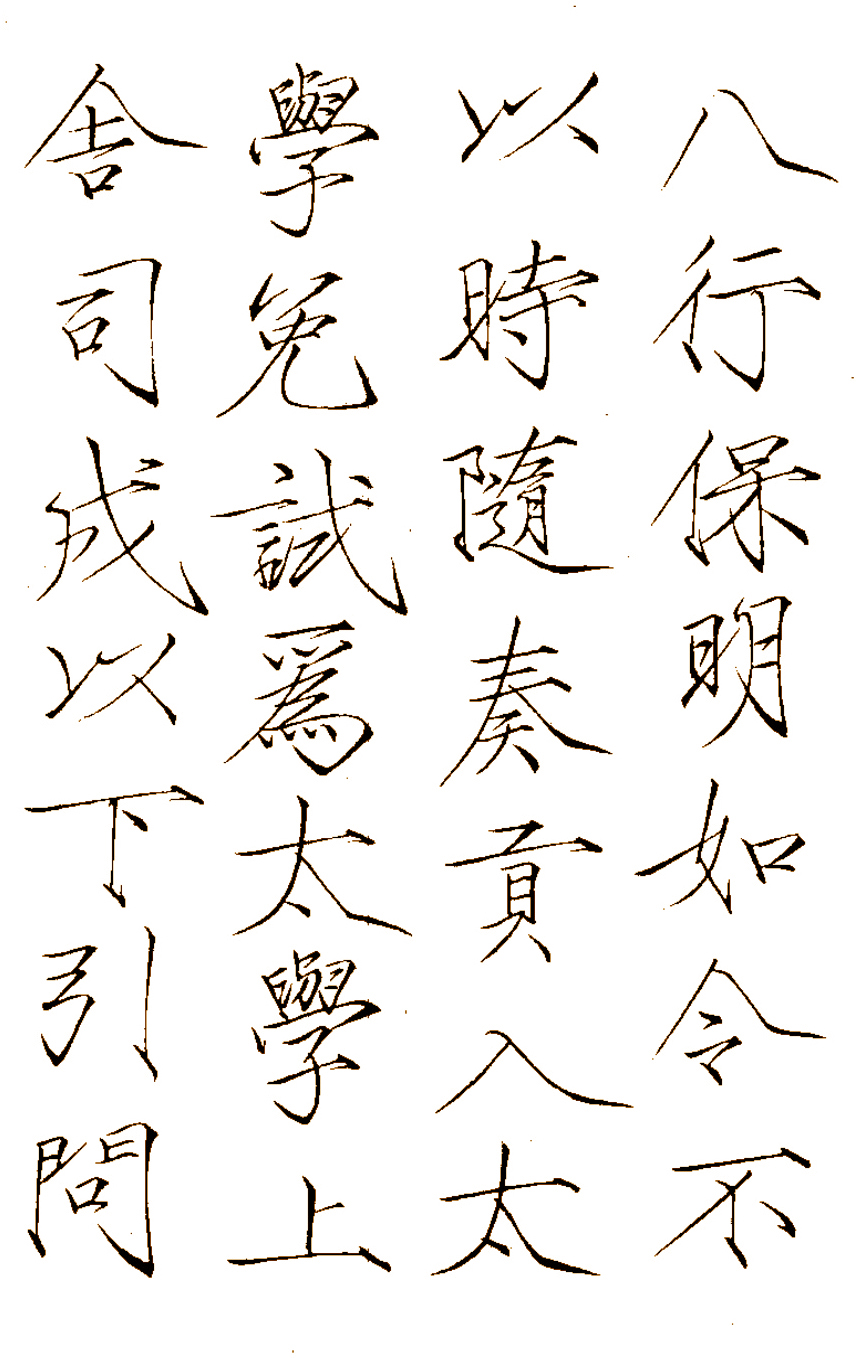 八行保明如令不
以時隨奏貢入太
學免試爲太學上
舍司成以下引問